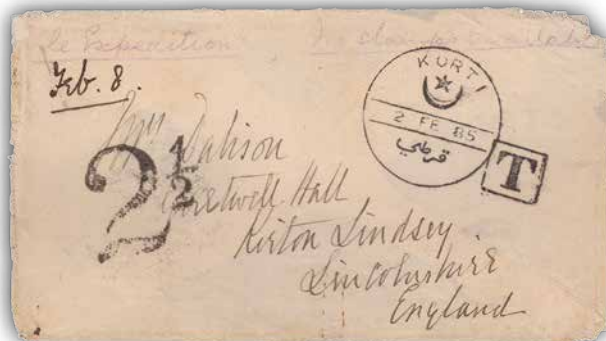 le Expedition No stamps available
Feb. 8.
KORTI
2 FE 85
قرطي
T
2½
Mrs Dalison
Greetwell Hall
Kirton Lindsey
Lincolnshire
England